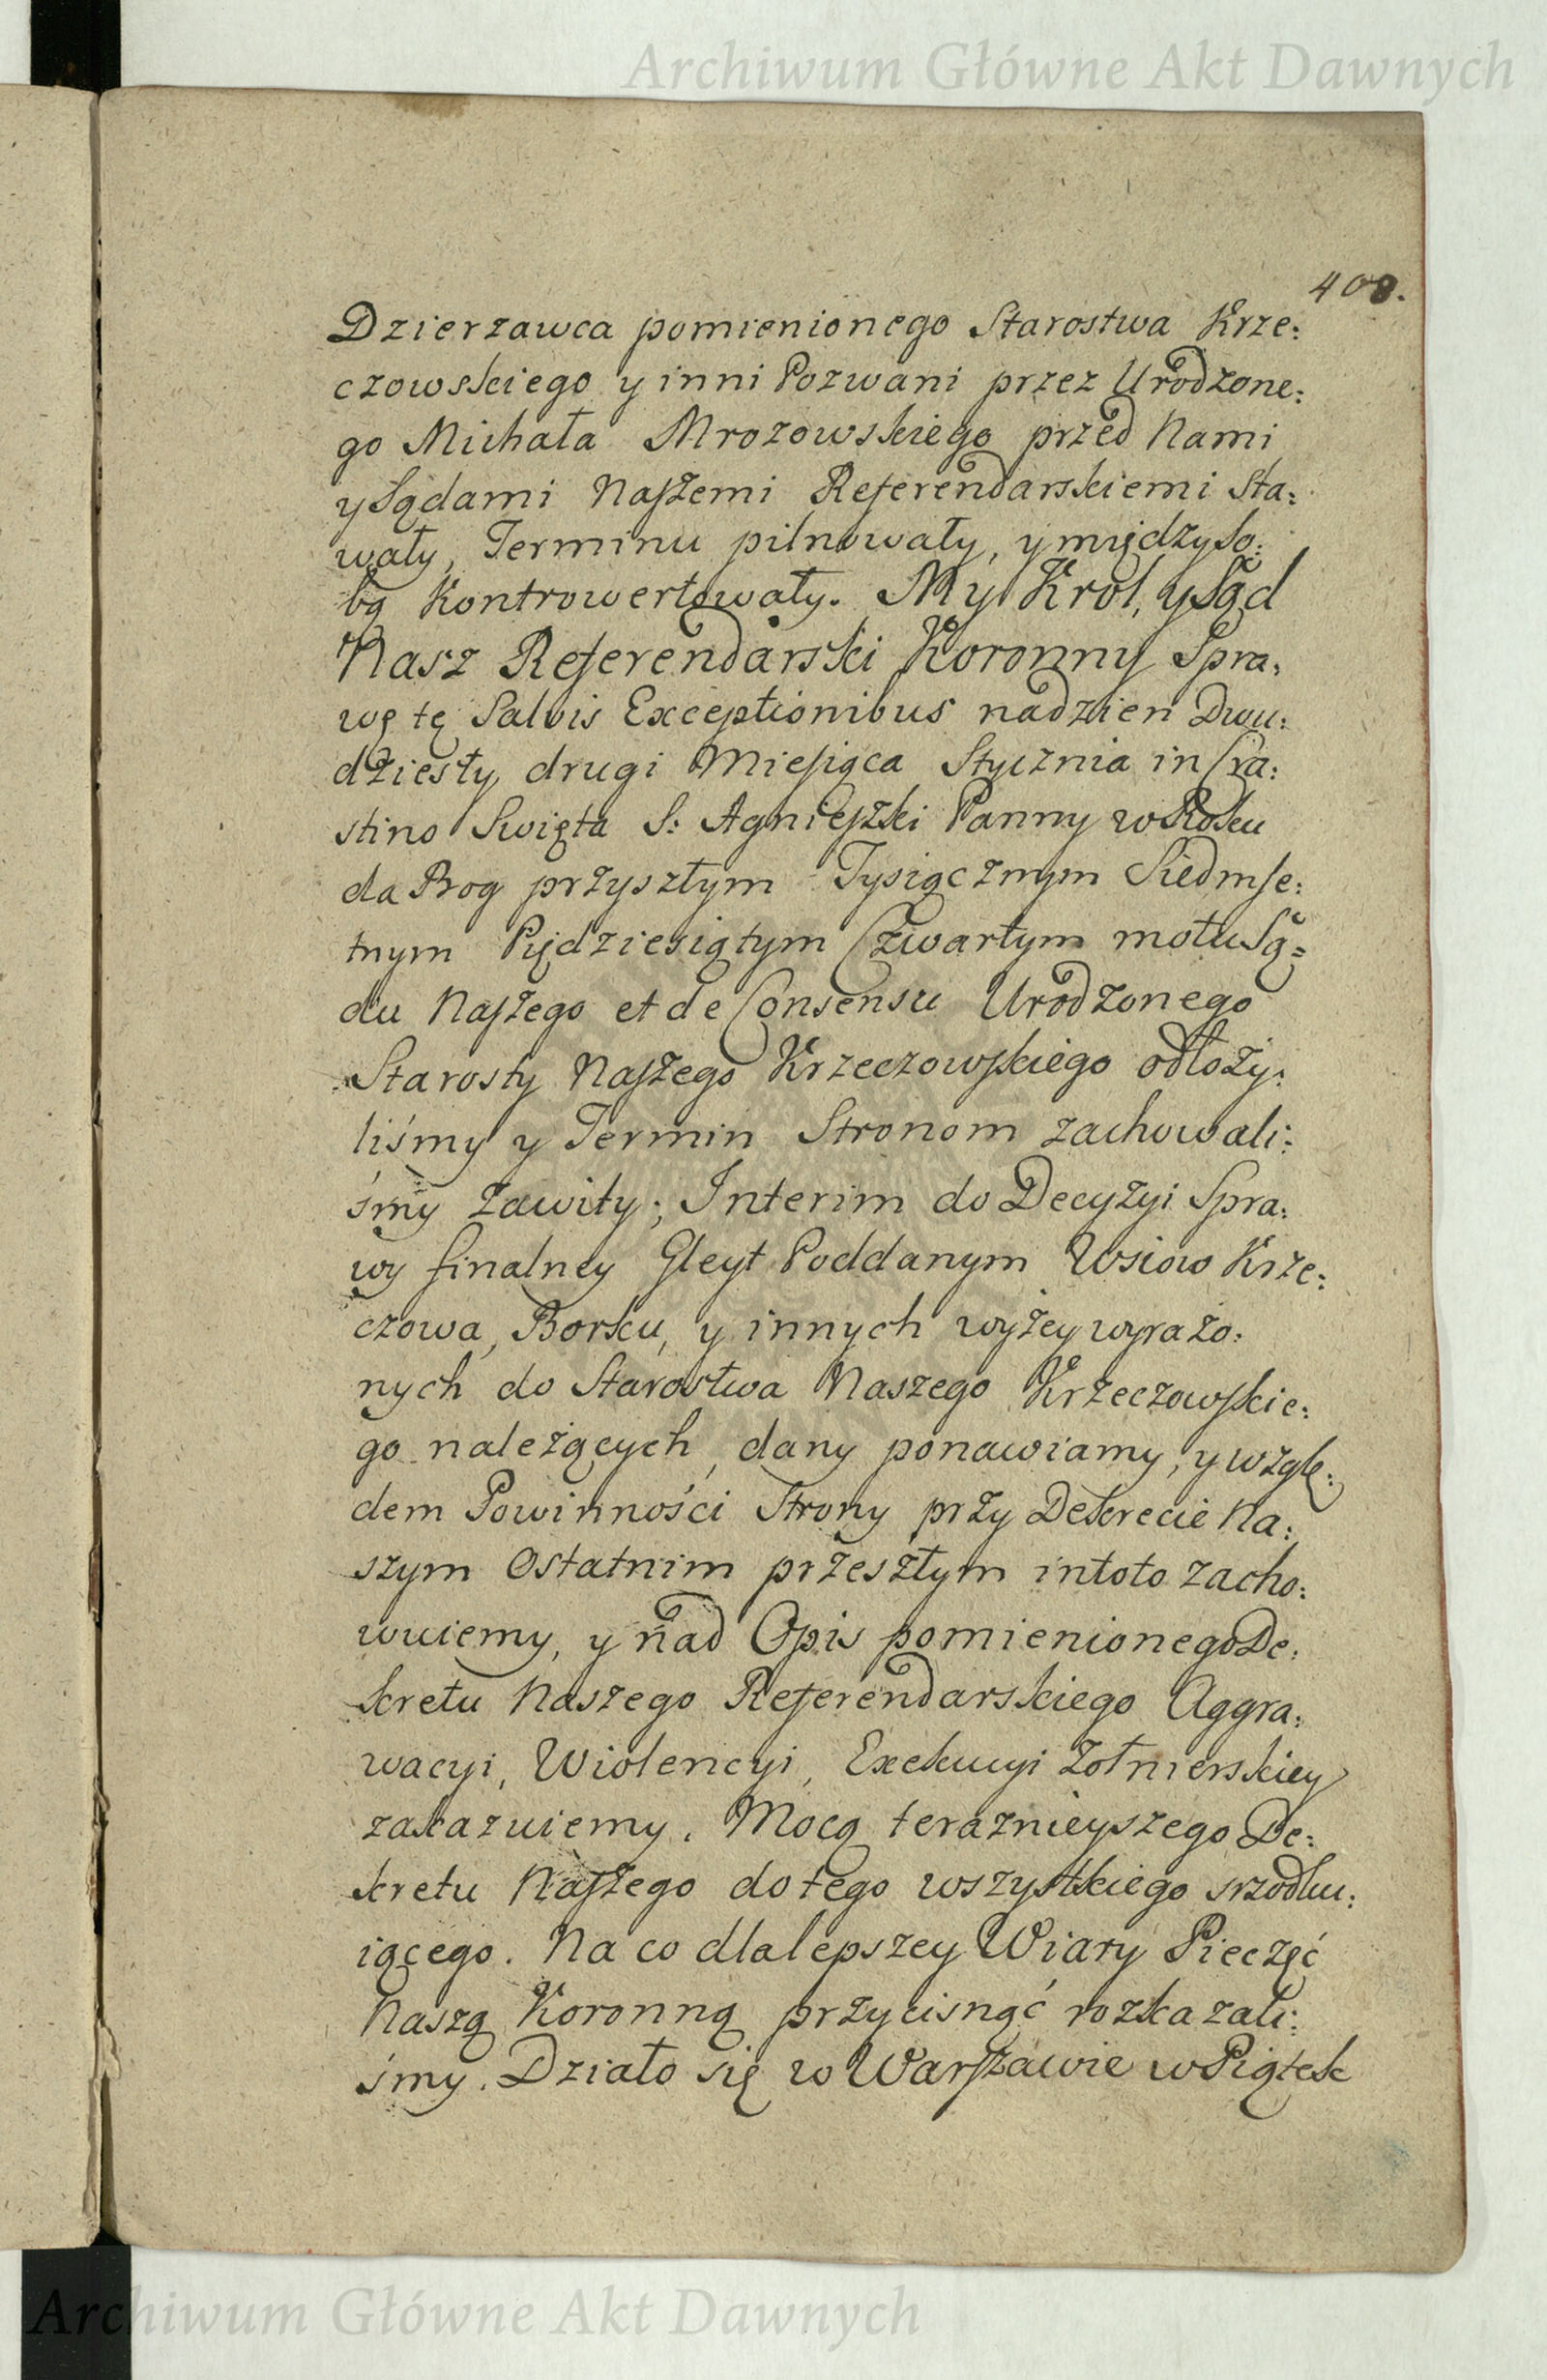 Archiwum Główne Akt Dawnych
408.
Dzierzawca pomienionego Starostwa Krze:
czowskiego y inni Pozwani przez Urodzone:
go Michała Mrozowskiego przed Nami
y Sądami Naszemi Referendarskiemi sta:
wały, Terminu pilnowały, y między so:
bą Kontrowertowały. My Krol, y Sąd
Nasz Referendarski Koronny Spra:
wę tę Salvis Exceptionibus na dzien Dwu:
dziesty drugi Miesiąca Stycznia in Cra:
stino Swięta S: Agnieszki Panny w Roku
da Bog przyszłym Tysiącznym Siedmse:
tnym Piędziesiątym Czwartym motu Są=
du Naszego et de Consensu Urodzonego
Starosty Naszego Krzeczowskiego odłoży:
liśmy y Termin Stronom zachowali:
śmy zawity; Interim do Decyzyi Spra:
wy finalney Gleyt Poddanym Wsiow Krze:
czowa, Borku, y innych wyżey wyrażo:
nych do Starostwa Naszego Krzeczowskie:
go należących, dany ponawiamy, y wzglę:
dem Powinności Strony przy Dekrecie Na:
szym Ostatnim przeszłym in toto zacho:
wuiemy, y nad Opis pomienionego De:
kretu Naszego Referendarskiego Aggra:
wacyi, Wiolencyi, Exekucyi Zołnierskiey
zakazuiemy. Mocą teraznieyszego De:
kretu Naszego do tego wszystkiego srzodku:
iącego. Na co dla lepszey Wiary Pieczęć
Naszą Koronną przycisnąć rozkazali:
śmy. Działo się w Warszawie w Piątek
Archiwum Główne Akt Dawnych